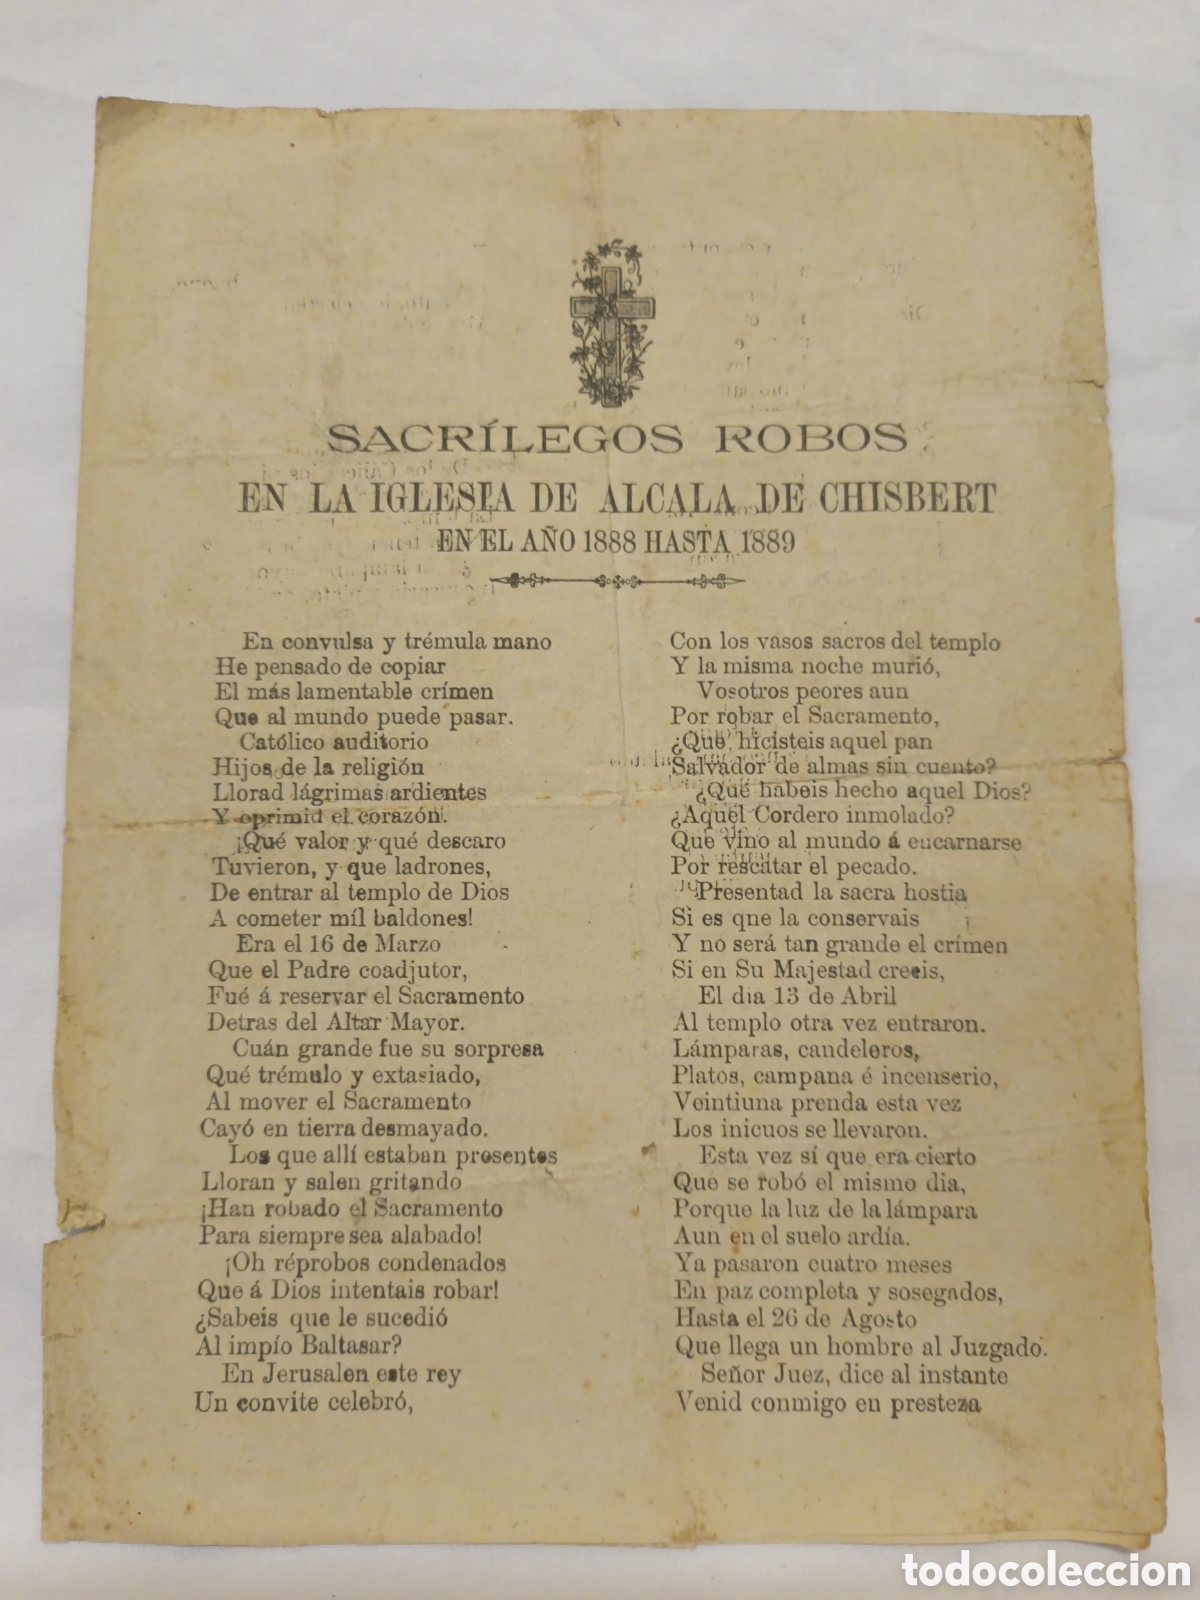 SACRÍLEGOS ROBOS
EN LA IGLESIA DE ALCALA DE CHISBERT
EN EL AÑO 1888 HASTA 1889
En convulsa y trémula mano
He pensado de copiar
El más lamentable crímen
Que al mundo puede pasar.
Católico auditorio
Hijos de la religión
Llorad lágrimas ardientes
Y oprimid el corazón.
¡Qué valor y qué descaro
Tuvieron, y que ladrones,
De entrar al templo de Dios
A cometer míl baldones!
Era el 16 de Marzo
Que el Padre coadjutor,
Fué á reservar el Sacramento
Detras del Altar Mayor.
Cuán grande fue su sorpresa
Qué trémulo y extasiado,
Al mover el Sacramento
Cayó en tierra desmayado.
Los que allí estaban presentes
Lloran y salen gritando
¡Han robado el Sacramento
Para siempre sea alabado!
¡Oh réprobos condenados
Que á Dios intentais robar!
¿Sabeis que le sucedió
Al impío Baltasar?
En Jerusalen este rey
Un convite celebró,
Con los vasos sacros del templo
Y la misma noche murió,
Vosotros peores aun
Por robar el Sacramento,
¿Que, hicisteis aquel pan
Salvador de almas sin cuento?
¿Qué habeis hecho aquel Dios?
¿Aquel Cordero inmolado?
Que vino al mundo á encarnarse
Por rescatar el pecado.
Presentad la sacra hostia
Si es qne la conservais
Y no será tan grande el crímen
Si en Su Majestad creeis,
El dia 13 de Abril
Al templo otra vez entraron.
Lámparas, candeleros,
Platos, campana é incenserio,
Veintiuna prenda esta vez
Los inicuos se llevaron.
Esta vez sí que era cierto
Que se robó el mismo dia,
Porque la luz de la lámpara
Aun en el suelo ardía.
Ya pasaron cuatro meses
En paz completa y sosegados,
Hasta el 26 de Agosto
Que llega un hombre al Juzgado.
Señor Juez, dice al instante
Venid conmigo en presteza
todocoleccion